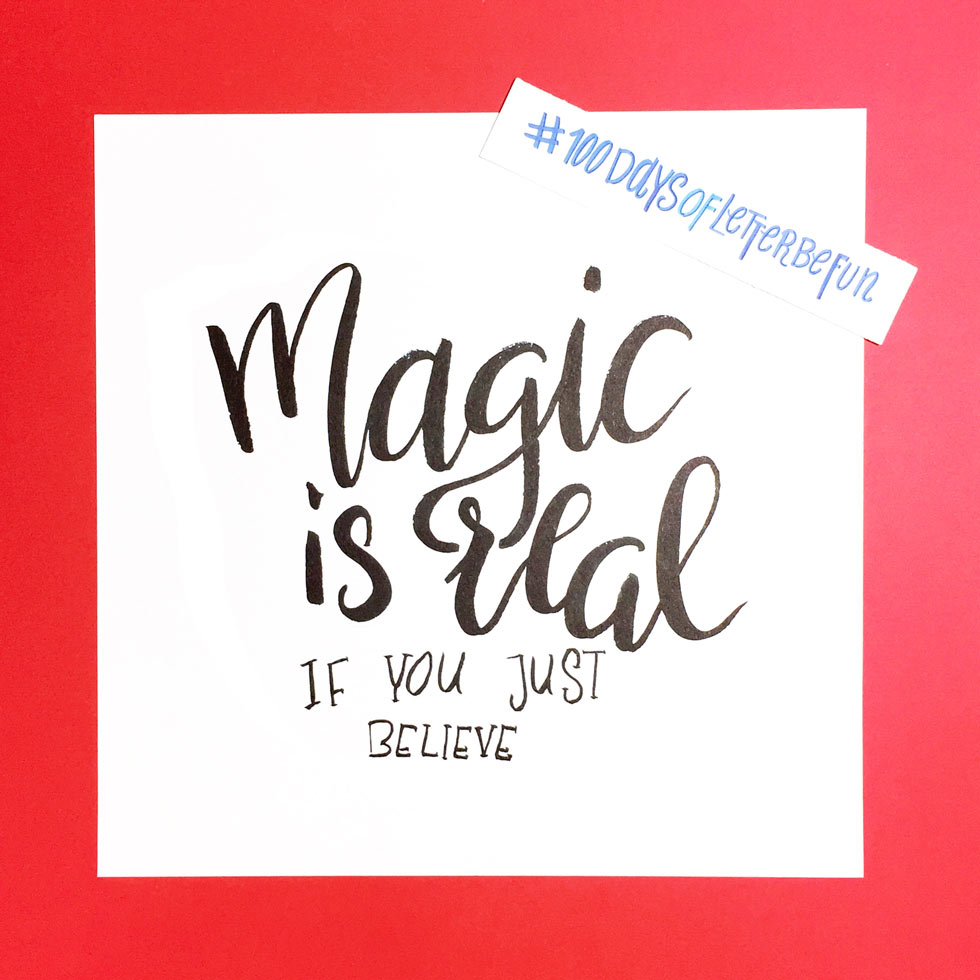 #100DaysOfLetterBeFun
Magic
is real
IF YOU JUST
BELIEVE